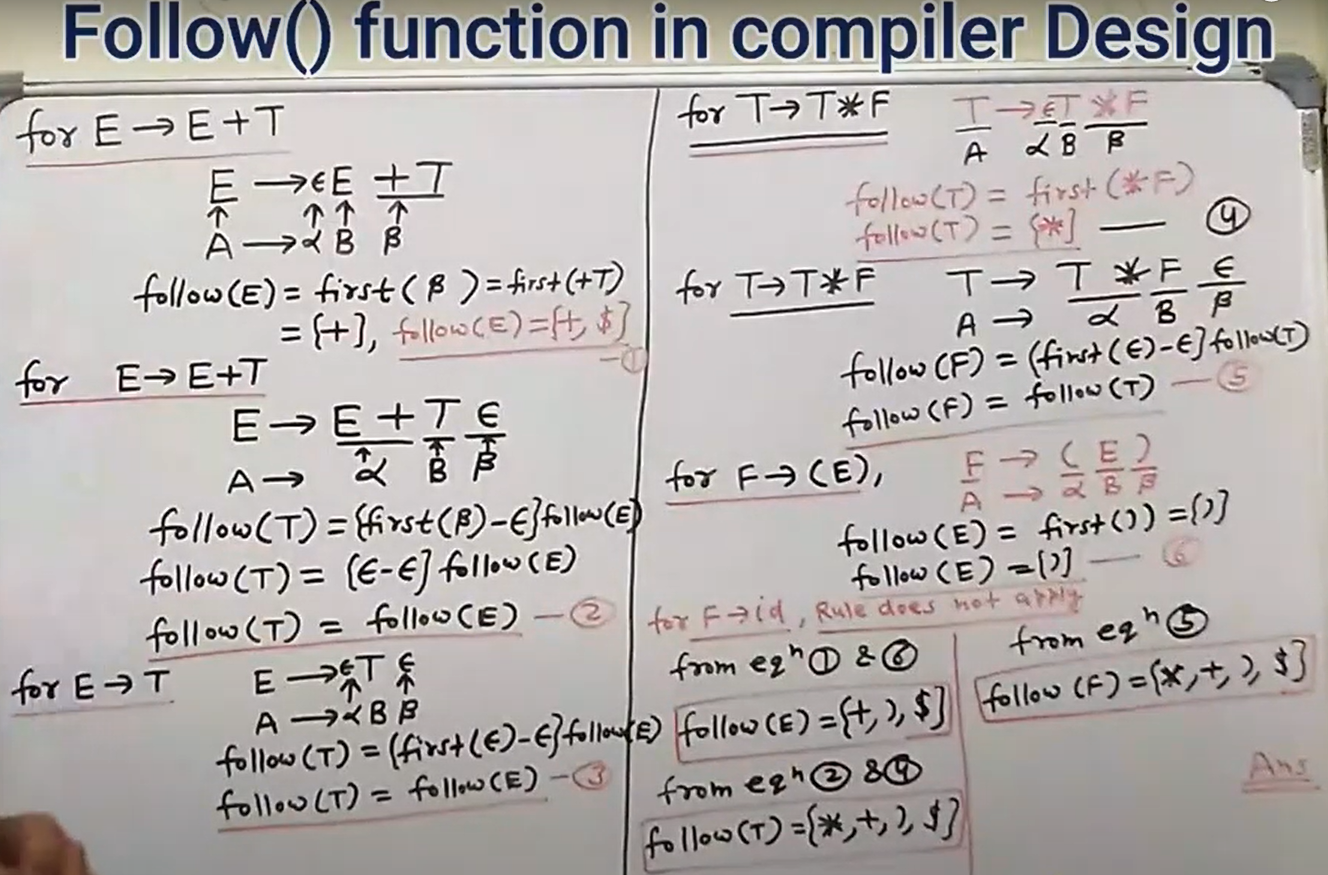 Follow() function in compiler Design
for E→E+T
E →ϵE +T
↑ ↑ ↑ ↑
A →α B β
follow(E) = first(β) = first(+T)
= {+}, follow(E)={+, $}
—①
for E→E+T
E → E + T ϵ
↑ ↑ ↑
A → α B β
follow(T) = {first(β)-ϵ} follow(E)
follow(T) = {ϵ-ϵ} follow(E)
follow(T) = follow(E) —②
for E→T
E →ϵT ϵ
↑ ↑
A →αB β
follow(T) = {first(ϵ)-ϵ} follow(E)
follow(T) = follow(E) —③
for T→T*F
T →ϵT *F
A α B β
follow(T) = first(*F)
follow(T) = {*} — ④
for T→T*F
T → T * F ϵ
A → α B β
follow(F) = {first(ϵ)-ϵ} follow(T)
follow(F) = follow(T) —⑤
for F→(E),
F → ( E )
A → α B β
follow(E) = first()) = {)}
follow(E) = {)} — ⑥
for F→id, Rule does not apply
from eqⁿ ① & ⑥
follow(E) = {+, ), $}
from eqⁿ ② & ④
follow(T) = {*, +, ), $}
from eqⁿ ⑤
follow(F) = {*, +, ), $}
Ans